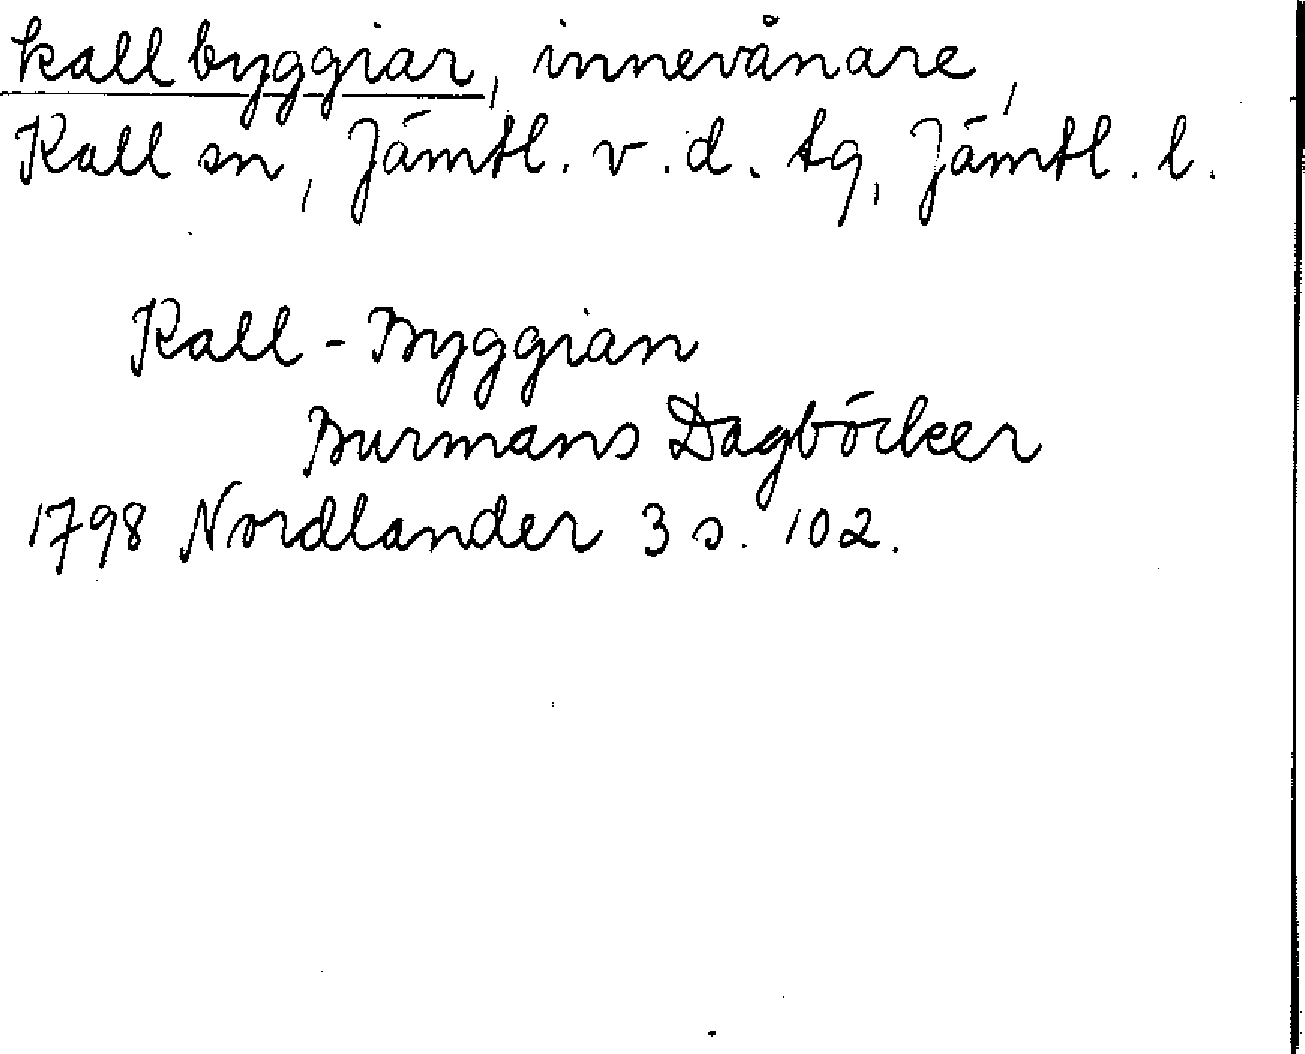 kallbyggiar, innevånare,
Kall sn, Jämtl. v. d. tg, Jämtl. l.
Kall-Byggian
Burmans Dagböcker
1798 Nordlander 3 s. 102.